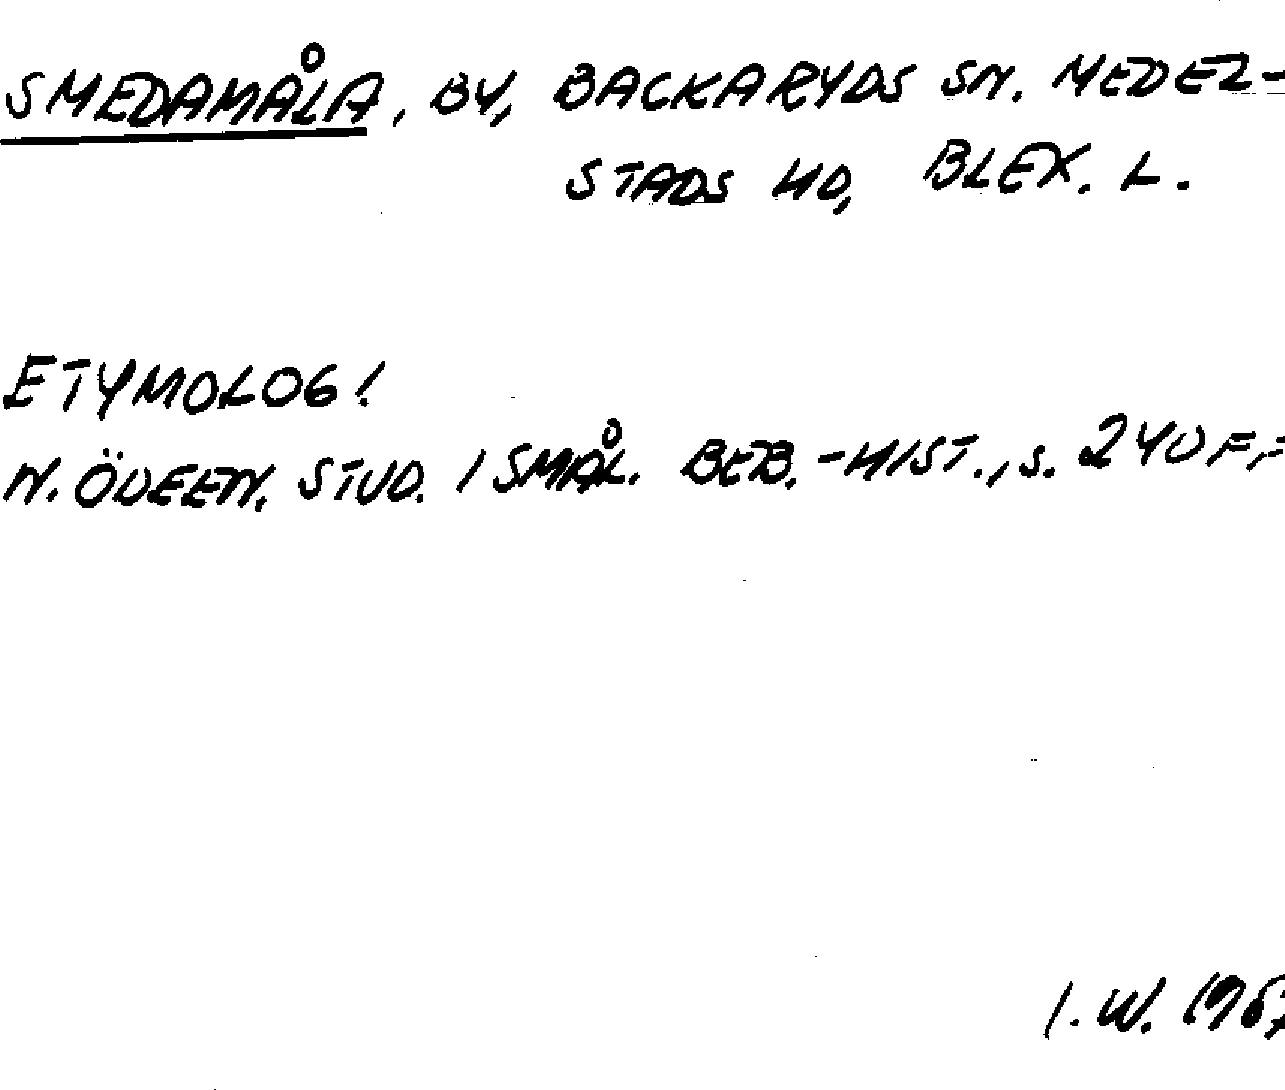 SMEDAMÅLA, BY, BACKARYDS SN. MEDEL-
STADS HD, BLEK. L.
ETYMOLOGI
N. ÖDEEN, STUD. I SMÅL. BEB.-HIST., S. 240 FF
I. W.